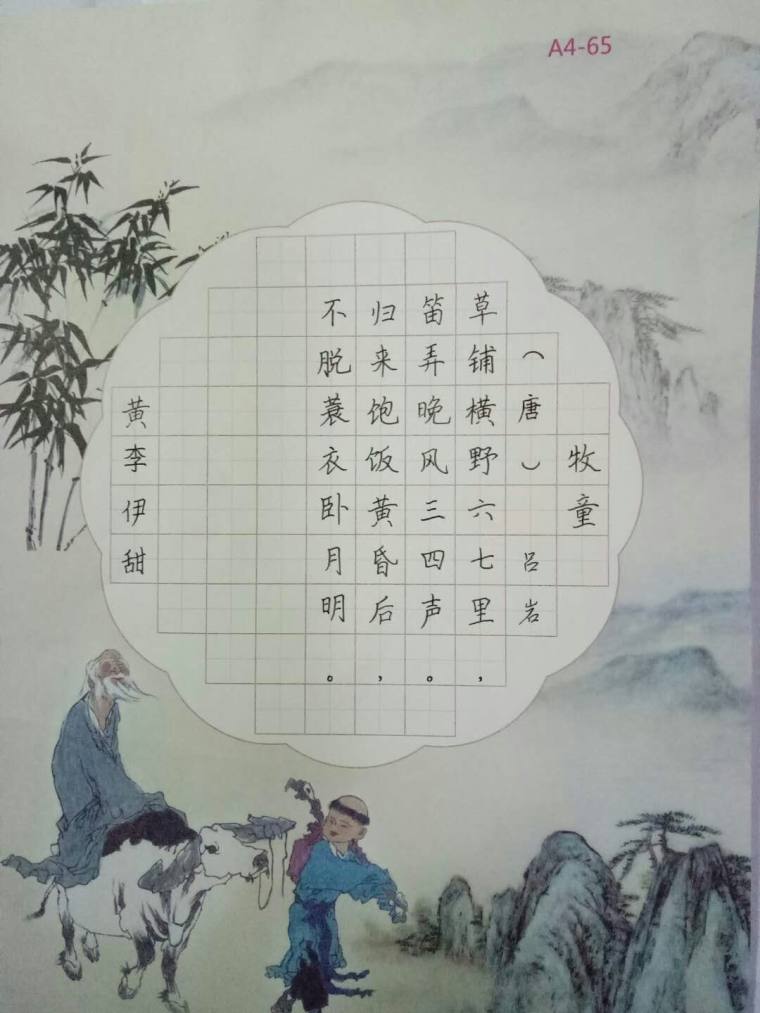 A4-65
牧童
（唐）吕岩
草铺横野六七里，
笛弄晚风三四声。
归来饱饭黄昏后，
不脱蓑衣卧月明。
黄李伊甜